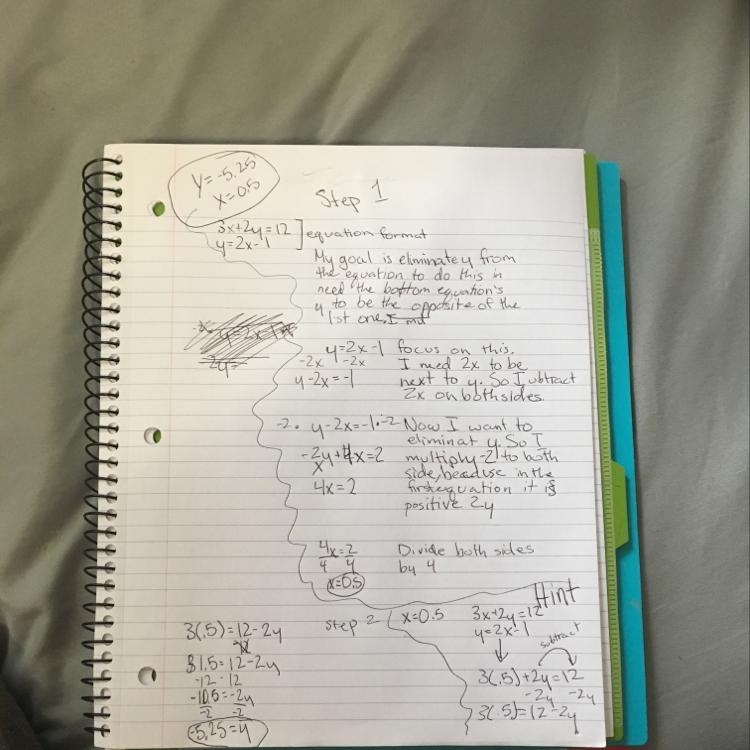 y=-5.25
x=0.5
Step 1
3x+2y=12 ] equation format
y=2x-1
My goal is eliminate y from
the equation to do this in
need the bottom equation's
y to be the opposite of the
1st one, I
y=2x-1 focus on this.
-2x -2x I need 2x to be
y-2x=-1 next to y. So I ubtract
2x on both sides.
-2. y-2x=-1.-2 Now I want to
eliminat y. So I
-2y+4x=2 multiply -2 to both
side, because in the
4x=2 first equation it is
positive 2y
4x=2 Divide both sides
4 4 by 4
x=0.5
Hint
step 2 x=0.5 3x+2y=12
y=2x-1
subtract
3(.5)+2y=12
-2y -2y
3(.5)=12-2y
3(.5)=12-2y
1.5=12-2y
-12 -12
-10.5=-2y
-2 -2
-5.25=y